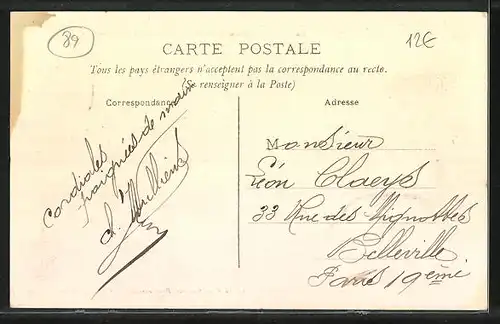 89
12€
CARTE POSTALE
Tous les pays étrangers n'acceptent pas la correspondance au recto.
renseigner à la Poste)
Correspondance
Adresse
Cordiales
poignées de mains
Monsieur
Léon Claeys
33 Rue des Mignottes
Belleville
Paris 19ème